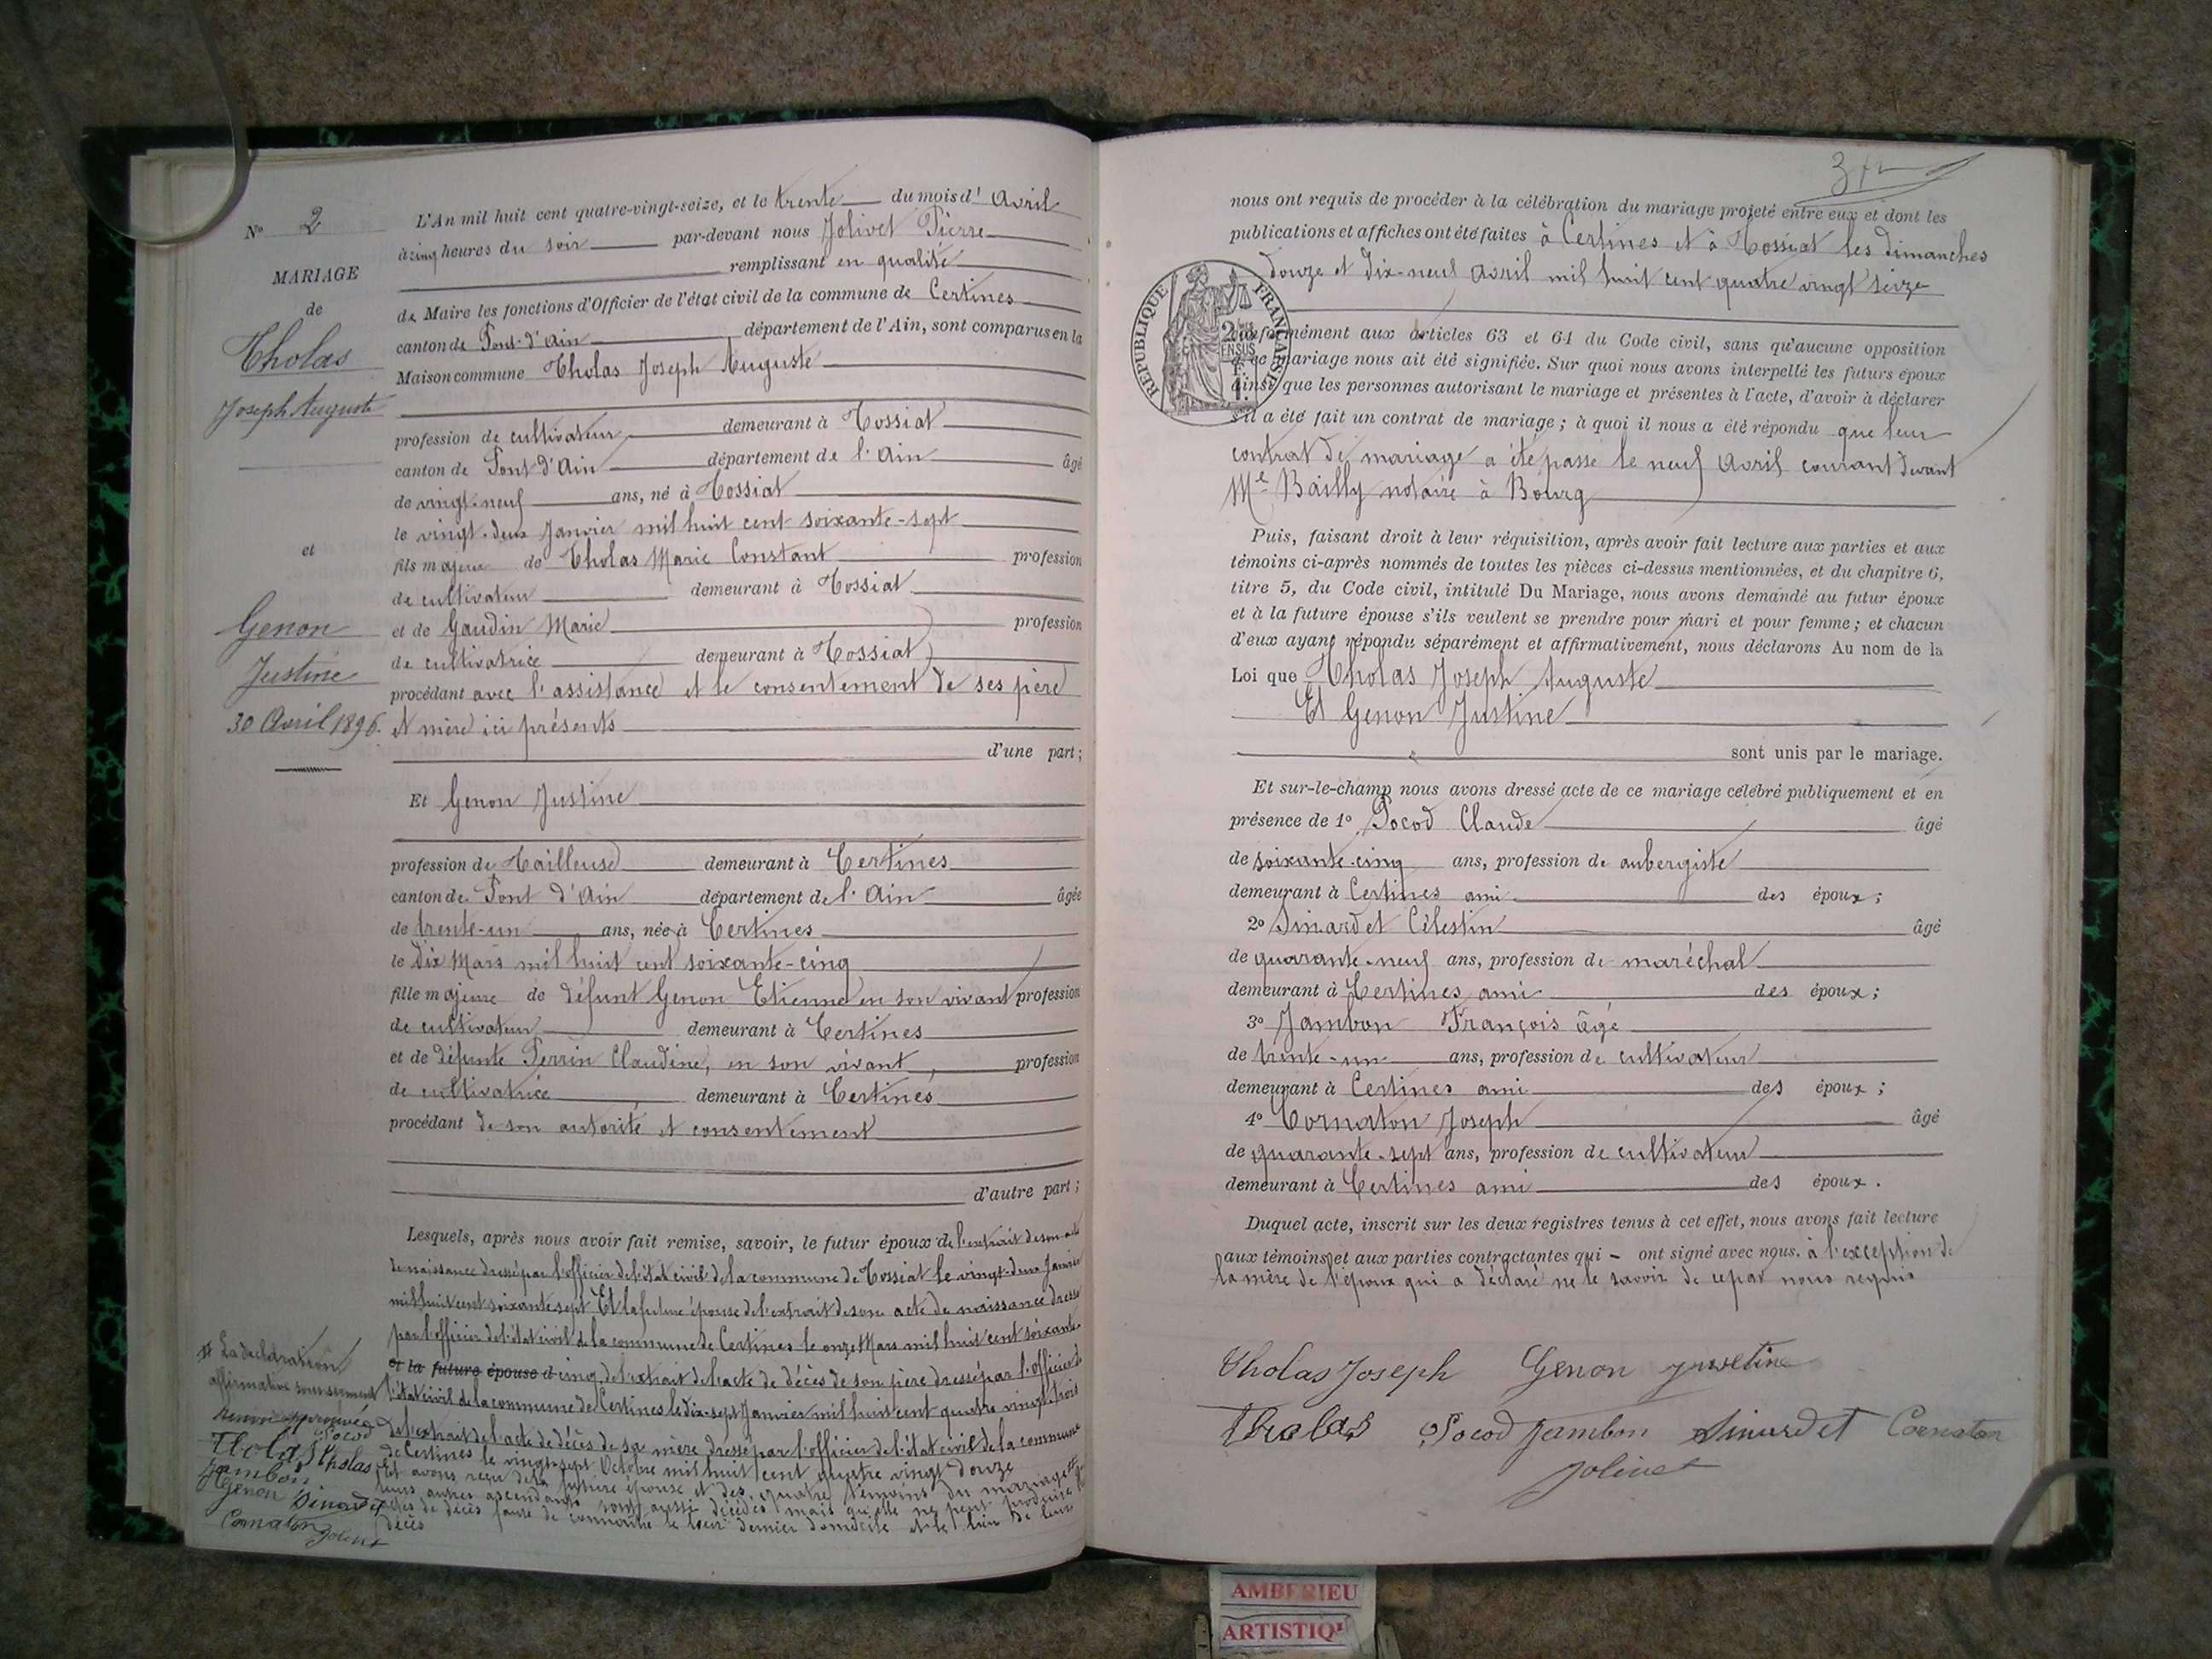 N° 2
MARIAGE
de
Tholas
Joseph Auguste
et
Genon
Justine
30 Avril 1896.
L'An mil huit cent quatre-vingt-seize, et le trente du mois d' Avril
à cinq heures du soir par-devant nous Jolivet Pierre
remplissant en qualité
de Maire les fonctions d'Officier de l'état civil de la commune de Certines
canton de Pont-d'Ain département de l'Ain, sont comparus en la
Maison commune Tholas Joseph Auguste
profession de cultivateur demeurant à Tossiat
canton de Pont d'Ain département de l'Ain âgé
de vingt-neuf ans, né à Tossiat
le vingt-deux Janvier mil huit cent soixante-sept
fils majeur de Tholas Marie Constant profession
de cultivateur demeurant à Tossiat
et de Gaudin Marie profession
de cultivatrice demeurant à Tossiat
procédant avec l'assistance et le consentement de ses père
et mère ici présents
d'une part;
Et Genon Justine
profession de Tailleuse demeurant à Certines
canton de Pont d'Ain département de l'Ain âgée
de trente-un ans, née à Certines
le Dix Mars mil huit cent soixante-cinq
fille majeure de défunt Genon Etienne en son vivant profession
de cultivateur demeurant à Certines
et de défunte Perrin Claudine, en son vivant, profession
de cultivatrice demeurant à Certines
procédant de son autorité et consentement
d'autre part;
Lesquels, après nous avoir fait remise, savoir, le futur époux de l'extrait de son acte
de naissance dressé par l'officier de l'état civil de la commune de Tossiat le vingt-deux Janvier
mil huit cent soixante sept Et la future épouse de l'extrait de son acte de naissance dressé
par l'officier de l'état civil de la commune de Certines le onze Mars mil huit cent soixante
et la future épouse d cinq de l'extrait de l'acte de décès de son père dressé par l'officier de
l'état civil de la commune de Certines le dix-sept Janvier mil huit cent quatre vingt trois
de l'extrait de l'acte de décès de sa mère dressé par l'officier de l'état civil de la commune
de Certines le vingt-sept Octobre mil huit cent quatre vingt douze
Et avons reçu de la future épouse et des quatre témoins du mariage #
leurs autres ascendants sont aussi décédés mais qu'elle ne peut produire les
actes de décès faute de connaître le leur dernier domicile et le lieu de leur
décès
# La déclaration
affirmative sous serment
Renvoi approuvé
Pocod
Tholas Tholas
Jambon
Genon Sinardet
Cornaton
Jolivet
3
nous ont requis de procéder à la célébration du mariage projeté entre eux et dont les
publications et affiches ont été faites à Certines et à Tossiat les dimanches
douze et dix-neuf avril mil huit cent quatre vingt seize
RÉPUBLIQUE FRANÇAISE
conformément aux articles 63 et 64 du Code civil, sans qu'aucune opposition
à ce mariage nous ait été signifiée. Sur quoi nous avons interpellé les futurs époux
ainsi que les personnes autorisant le mariage et présentes à l'acte, d'avoir à déclarer
s'il a été fait un contrat de mariage; à quoi il nous a été répondu que leur
contrat de mariage a été passé le neuf Avril courant devant
Me Bailly notaire à Bourg
Puis, faisant droit à leur réquisition, après avoir fait lecture aux parties et aux
témoins ci-après nommés de toutes les pièces ci-dessus mentionnées, et du chapitre 6,
titre 5, du Code civil, intitulé Du Mariage, nous avons demandé au futur époux
et à la future épouse s'ils veulent se prendre pour mari et pour femme; et chacun
d'eux ayant répondu séparément et affirmativement, nous déclarons Au nom de la
Loi que Tholas Joseph Auguste
Et Genon Justine
sont unis par le mariage.
Et sur-le-champ nous avons dressé acte de ce mariage célébré publiquement et en
présence de 1° Pocod Claude âgé
de soixante-cinq ans, profession de aubergiste
demeurant à Certines ami des époux;
2° Sinardet Célestin âgé
de quarante-neuf ans, profession de maréchal
demeurant à Certines ami des époux;
3° Jambon François âgé
de trente-un ans, profession de cultivateur
demeurant à Certines ami des époux;
4° Cornaton Joseph âgé
de quarante-sept ans, profession de cultivateur
demeurant à Certines ami des époux.
Duquel acte, inscrit sur les deux registres tenus à cet effet, nous avons fait lecture
aux témoins et aux parties contractantes qui - ont signé avec nous. à l'exception de
la mère de l'époux qui a déclaré ne le savoir de ce par nous requis
Tholas Joseph Genon Justine
Tholas Pocod Jambon Sinardet Cornaton
Jolivet
AMBERIEU
ARTISTIQ